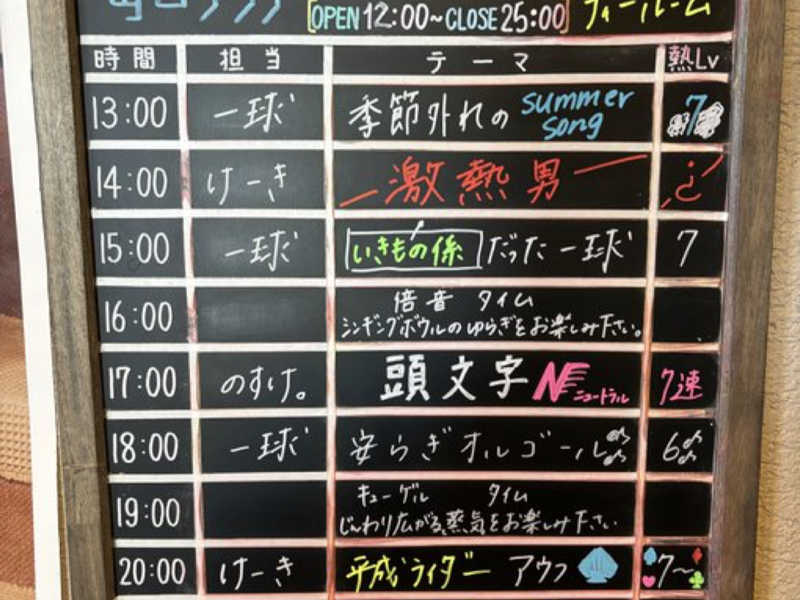 OPEN 12:00~CLOSE 25:00
時間 担当 テーマ 熱Lv
13:00 一球 季節外れの summer song 7
14:00 けーき 激熱男 ¿
15:00 一球 いきもの係だった一球 7
16:00 倍音タイム
シンギングボウルのゆらぎをお楽しみ下さい。
17:00 のすけ。 頭文字N ニュートラル 7速
18:00 一球 安らぎオルゴール 6
19:00 キューゲル タイム
じんわり広がる、蒸気をお楽しみ下さい
20:00 けーき 平成ライダー アウフ 7~